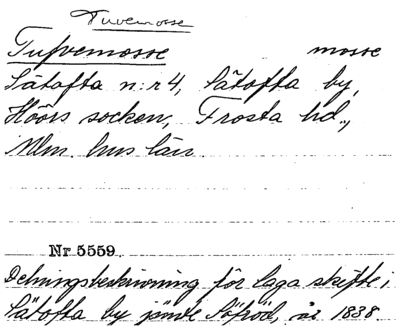 Tuvemosse
Tufvemosse mosse
Sätofta n:r 4, Sätofta by,
Höörs socken, Frosta hd.,
Mlm. hus län.
Nr 5559
Delningsbeskrivning för laga skifte i
Sätofta by jemte år 1838